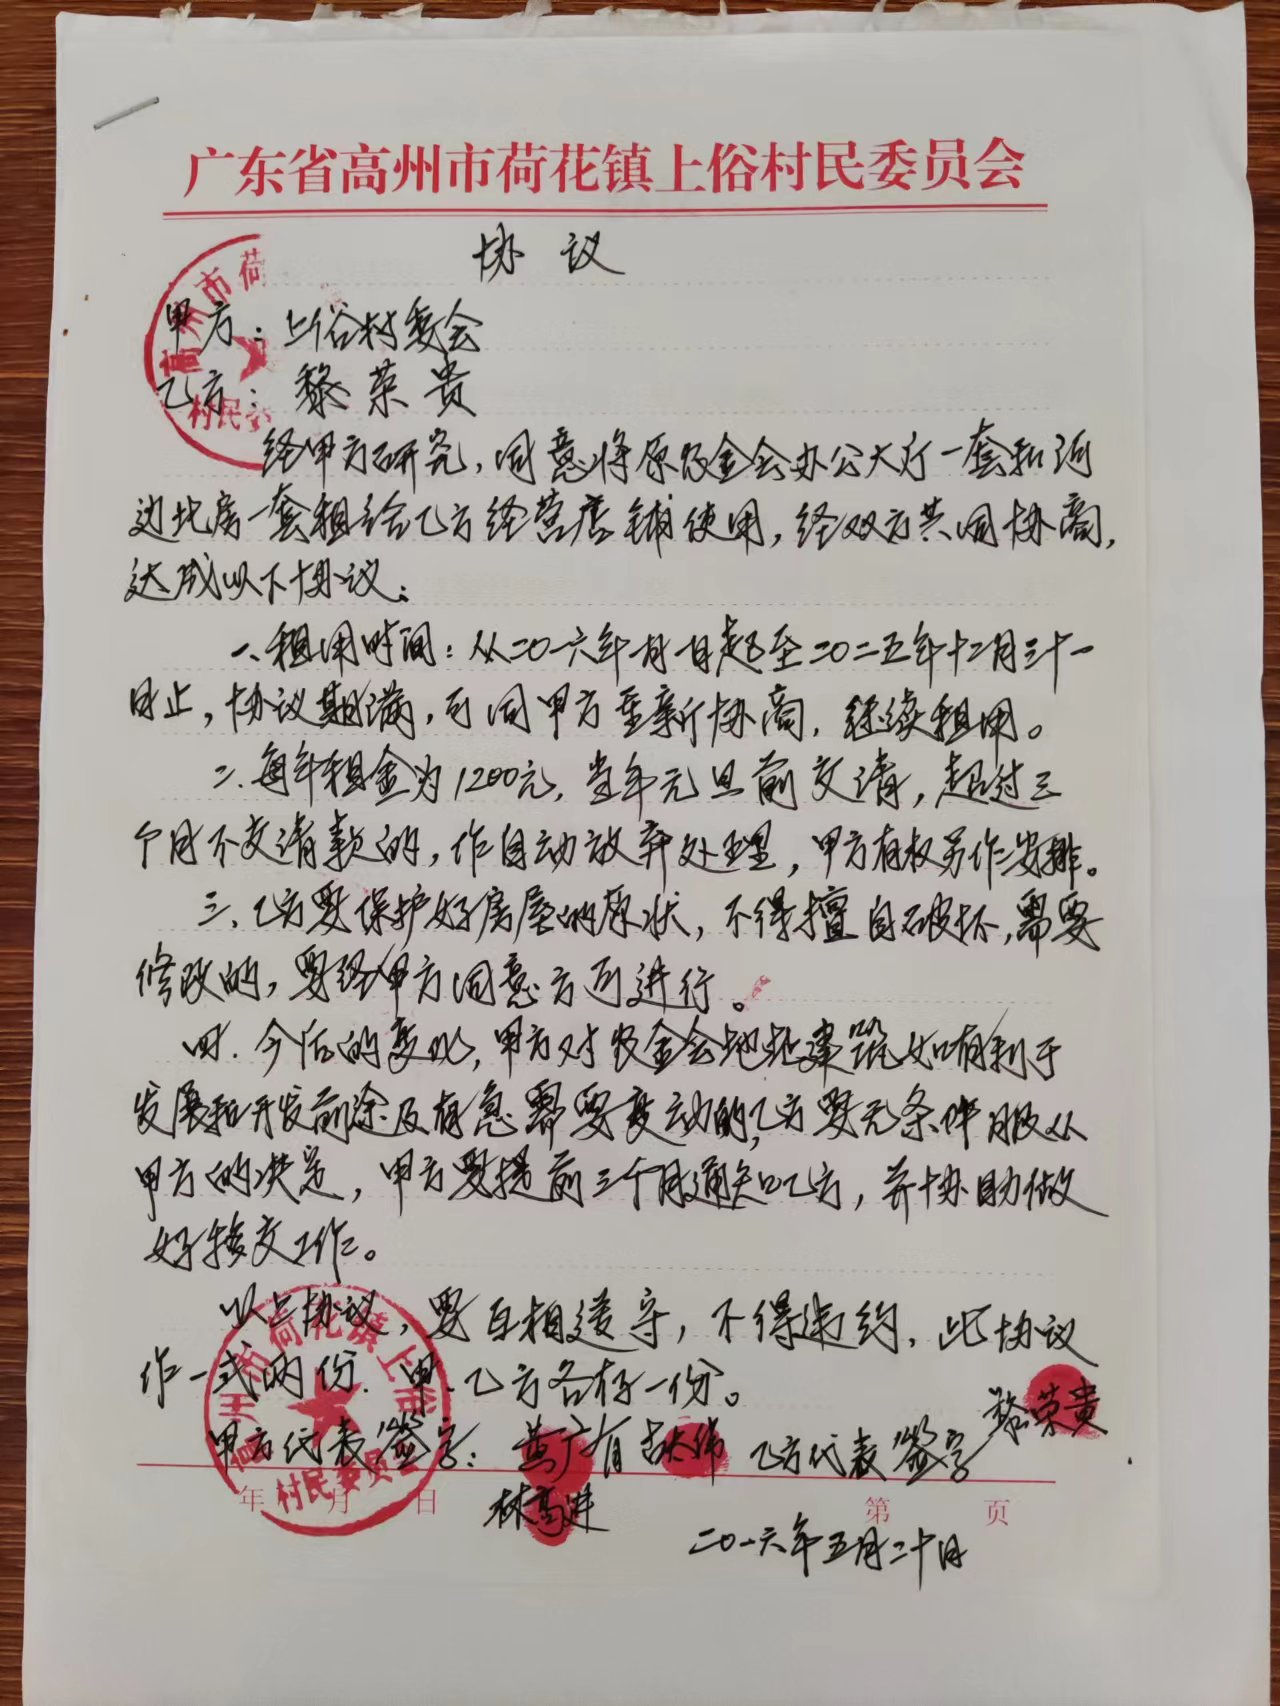 广东省高州市荷花镇上俗村民委员会
协议
甲方：上俗村委会
乙方：黎荣贵
经甲方研究，同意将原农金会办公大厅一套和河
边北房一套租给乙方经营店铺使用，经双方共同协商，
达成以下协议：
一、租用时间：从二〇一六年一月一日起至二〇二五年十二月三十一
日止，协议期满，可同甲方重新协商，继续租用。
二、每年租金为1200元，当年元旦前交清，超过三
个月不交清款的，作自动放弃处理，甲方有权另作安排。
三、乙方要保护好房屋的原状，不得擅自破坏，需要
修改的，要经甲方同意方可进行。
四、今后的变化，甲方对农金会地址建筑如有利于
发展和开发前途及有急需要变动的，乙方要无条件服从
甲方的决定，甲方要提前三个月通知乙方，并协助做
好移交工作。
以上协议，要互相遵守，不得违约，此协议
作一式两份，甲、乙方各存一份。
甲方代表签字：黄广有 乙方代表签字 黎荣贵
林高进
年 月 日 第 页
二〇一六年五月二十日
高州市荷
村民委
高州市荷花镇上俗
村民委员会